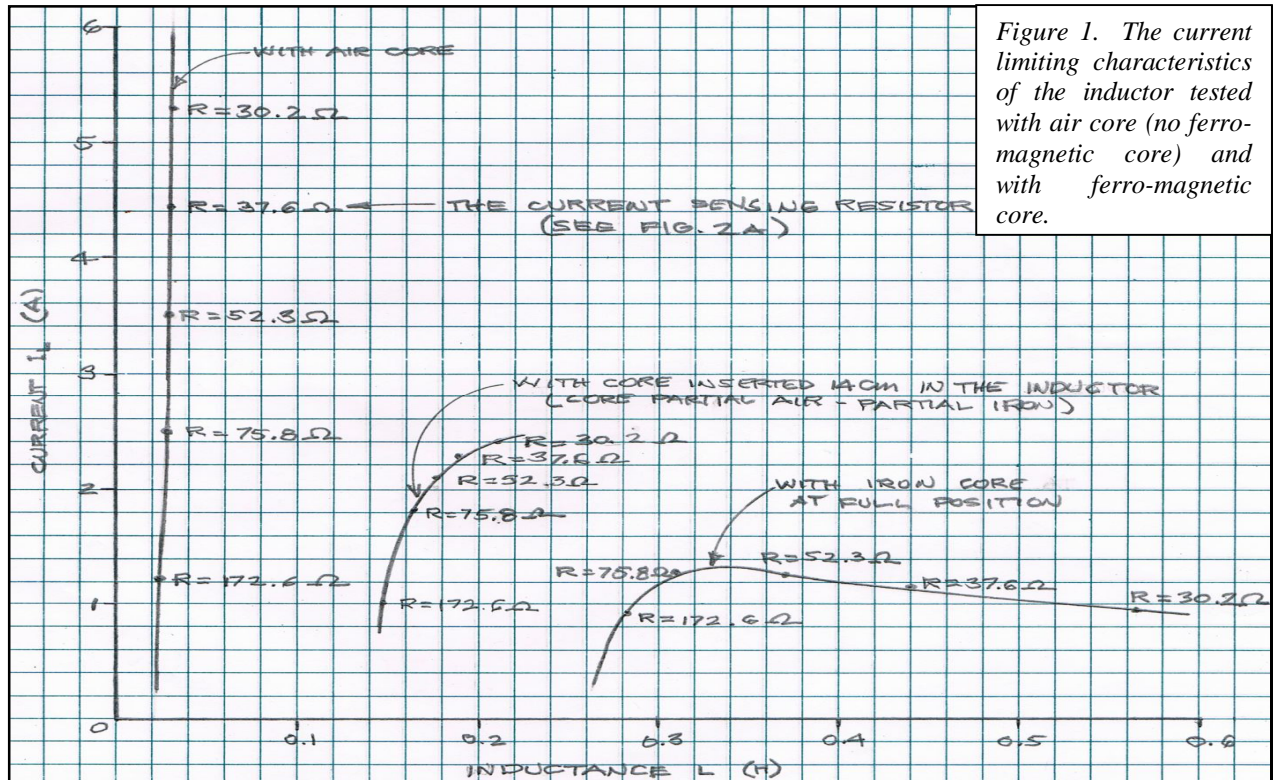 Figure 1. The current
limiting characteristics
of the inductor tested
with air core (no ferro-
magnetic core) and
with ferro-magnetic
core.
6
WITH AIR CORE
R=30.2Ω
5
R=37.6Ω
THE CURRENT SENSING RESISTOR
(SEE FIG. 2A)
4
R=52.3Ω
CURRENT I_L (A)
3
WITH CORE INSERTED 14cm IN THE INDUCTOR
(CORE PARTIAL AIR - PARTIAL IRON)
R=75.8Ω
R=30.2Ω
R=37.6Ω
R=52.3Ω
2
R=75.8Ω
WITH IRON CORE
AT FULL POSITION
R=172.6Ω
R=75.8Ω
R=52.3Ω
R=37.6Ω
R=30.2Ω
1
R=172.6Ω
R=172.6Ω
0
0.1
0.2
0.3
0.4
0.5
0.6
INDUCTANCE L (H)